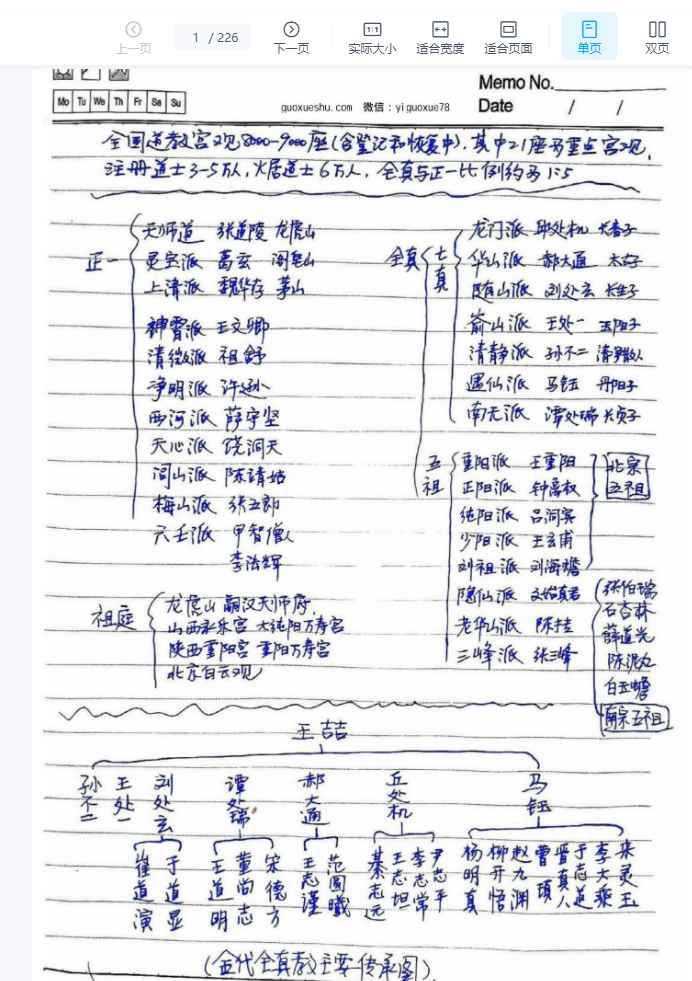 上一页 1 / 226 下一页 实际大小 适合宽度 适合页面 单页 双页
Mo Tu We Th Fr Sa Su
guoxueshu.com 微信：yiguoxue78
Memo No.
Date / /
全国道教宫观8000-9000座(含登记和恢复中)，其中21座为重点宫观，
注册道士3-5万人，火居道士6万人，全真与正一比例约为1:5
正一
天师道 张道陵 龙虎山
灵宝派 葛玄 阁皂山
上清派 魏华存 茅山
神霄派 王文卿
清微派 祖舒
净明派 许逊
西河派 萨守坚
天心派 饶洞天
闾山派 陈靖姑
梅山派 张五郎
六壬派 甲智僧
李法辉
祖庭
龙虎山 嗣汉天师府，
山西永乐宫 大纯阳万寿宫
陕西重阳宫 重阳万寿宫
北京白云观
全真
七真
龙门派 邱处机 长春子
华山派 郝大通 太古子
随山派 刘处玄 长生子
嵛山派 王处一 玉阳子
清静派 孙不二 清净散人
遇仙派 马钰 丹阳子
南无派 谭处端 长真子
五祖
重阳派 王重阳
正阳派 钟离权
纯阳派 吕洞宾
少阳派 王玄甫
刘祖派 刘海蟾
北宗五祖
隐仙派 文始真君
老华山派 陈抟
三峰派 张三峰
张伯瑞
石杏林
薛道光
陈泥丸
白玉蟾
南宗五祖
王喆
孙不二 王处一 刘处玄 谭处端 郝大通 丘处机 马钰
崔道演 于道显 王道明 董尚志 宋德方 王志谨 范圆曦 綦志远 王志坦 李志常 尹志平 杨明真 柳开悟 赵九渊 曹瑱 晋真人 于志道 李大乘 来灵玉
(金代全真教主要传承图)